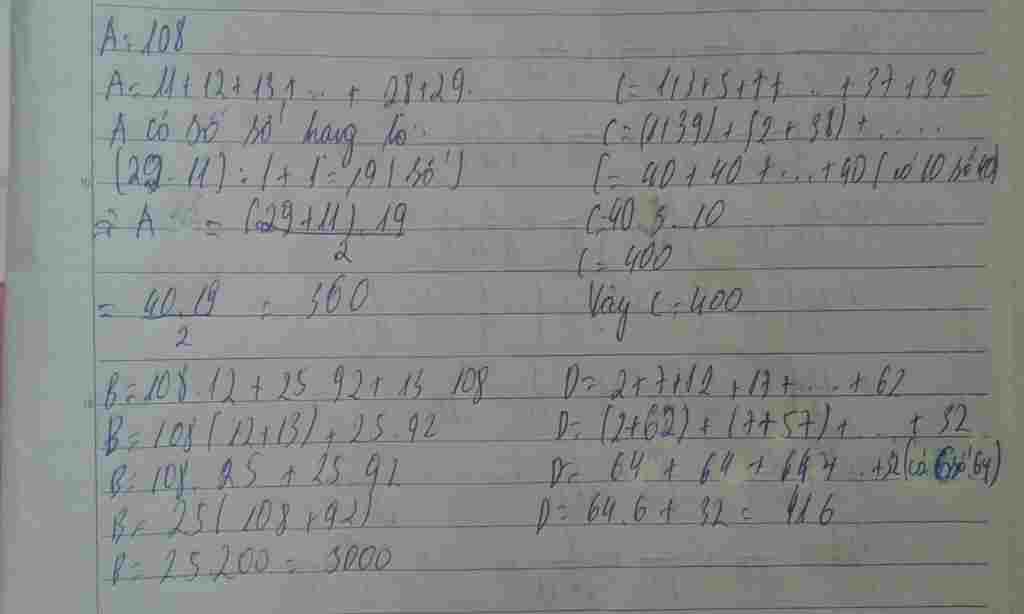 A = 108
A = 11 + 12 + 13 + ... + 28 + 29.
A có số số hạng là:
(29 - 11) : 1 + 1 = 19 (số)
=> A = (29 + 11) . 19 / 2
= 40 . 19 / 2 = 360
C = 1 + 3 + 5 + 7 + ... + 37 + 39
C = (1 + 39) + (2 + 38) + ....
C = 40 + 40 + ... + 40 (có 10 số 40)
C = 40 . 10
C = 400
Vậy C = 400
B = 108 . 12 + 25 . 92 + 13 . 108
B = 108 (12 + 13) + 25 . 92
B = 108 . 25 + 25 . 92
B = 25 (108 + 92)
B = 25 . 200 = 5000
D = 2 + 7 + 12 + 17 + ... + 62
D = (2 + 62) + (7 + 57) + ... + 32
D = 64 + 64 + 64 + ... + 32 (có 6 số 64)
D = 64 . 6 + 32 = 416